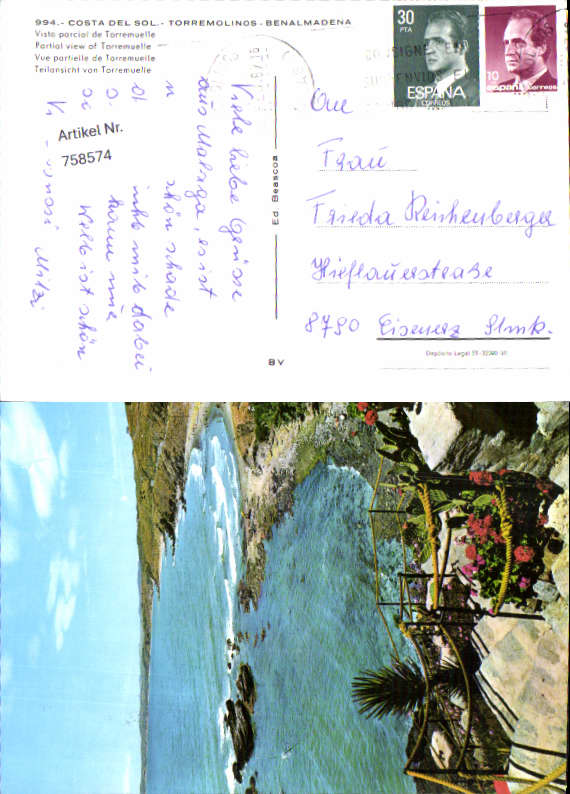 994.- COSTA DEL SOL.- TORREMOLINOS - BENALMADENA
Vista parcial de Torremuelle
Partial view of Torremuelle
Vue partielle de Torremuelle
Teilansicht von Torremuelle
Viele liebe Grüsse
aus Malaga, es ist
schön schade
nicht mit dabei
Welt ist schön
Mitzi
Artikel Nr.
758574
Ed Beascoa
BV
30
PTA
ESPAÑA
CORREOS
10
españa correos
CONSIGNE
SUS ENVIOS
Frau
Frieda Reichenberger
Hieflauerstraße
8790 Eisenerz Stmk.